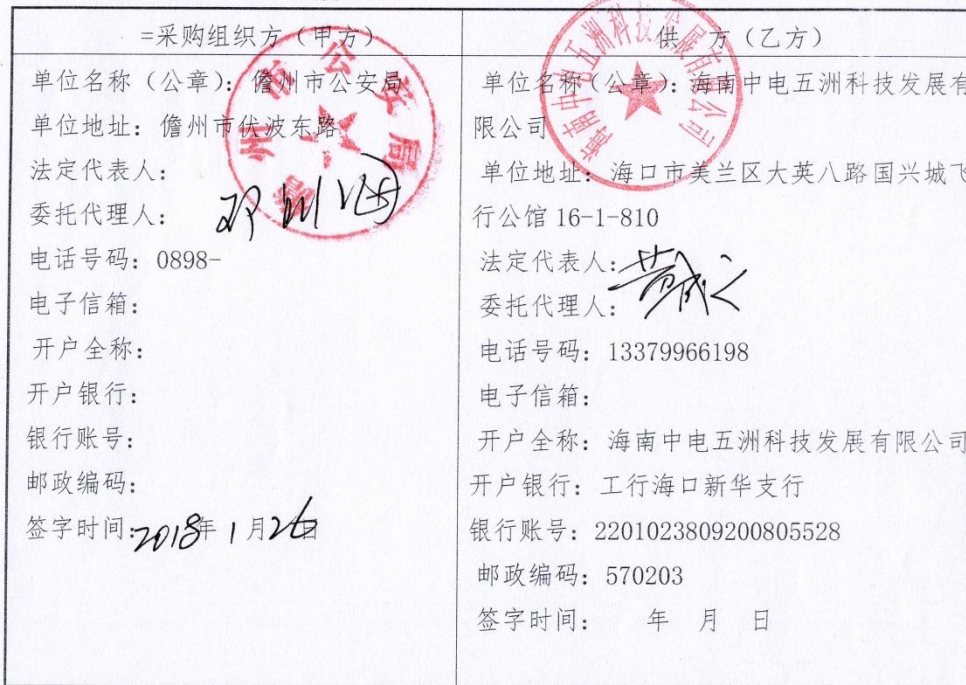 =采购组织方（甲方）
单位名称（公章）：儋州市公安局
单位地址：儋州市伏波东路
法定代表人：
委托代理人：
电话号码：0898-
电子信箱：
开户全称：
开户银行：
银行账号：
邮政编码：
签字时间：2018年1月26日
儋州市公安局
供 方（乙方）
单位名称（公章）：海南中电五洲科技发展有
限公司
单位地址：海口市美兰区大英八路国兴城飞
行公馆 16-1-810
法定代表人：
委托代理人：
电话号码：13379966198
电子信箱：
开户全称：海南中电五洲科技发展有限公司
开户银行：工行海口新华支行
银行账号：2201023809200805528
邮政编码：570203
签字时间： 年 月 日
海南中电五洲科技发展有限公司